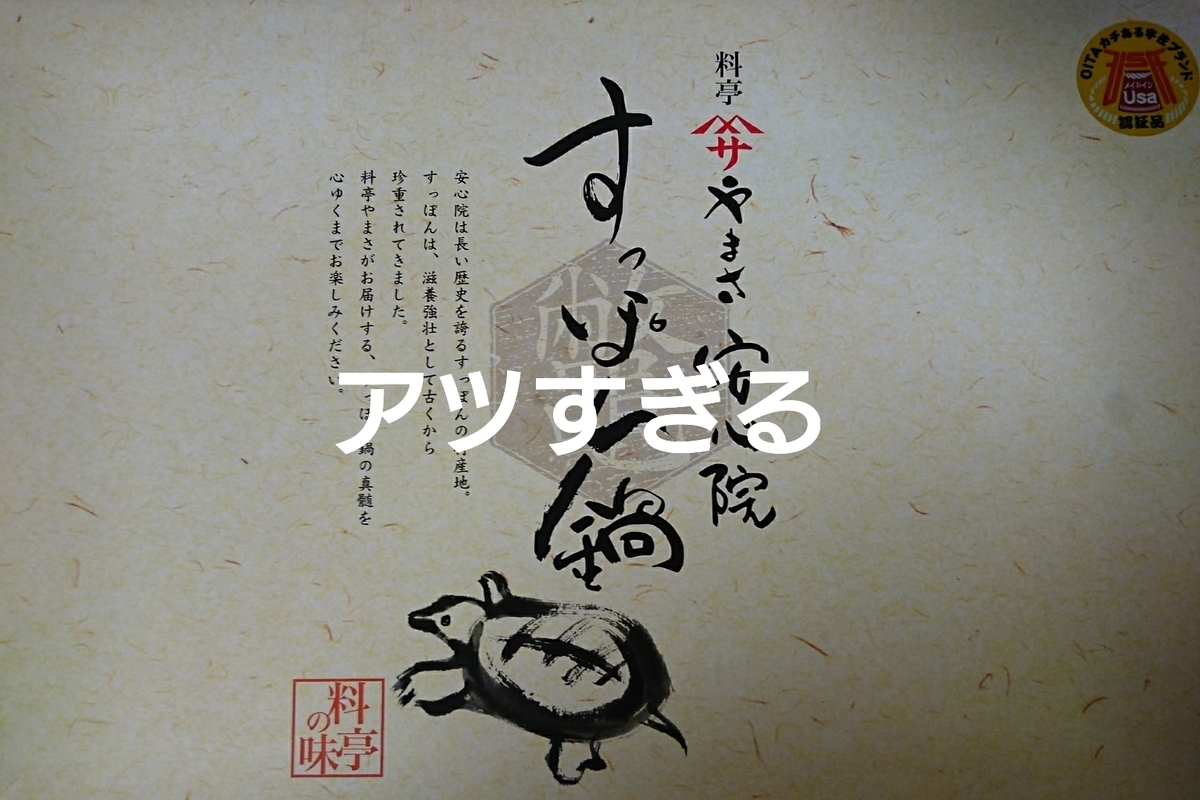 料亭
サ
やまさ 安心院
すっぽん鍋
安心院は長い歴史を誇るすっぽんの
産地。
すっぽんは、滋養強壮として古くから
珍重されてきました。
料亭やまさがお届けする、
鍋の真髄を
心ゆくまでお楽しみください。
アツすぎる
料亭
の味
OITAカチある宇佐ブランド
メイドイン
Usa
認証品